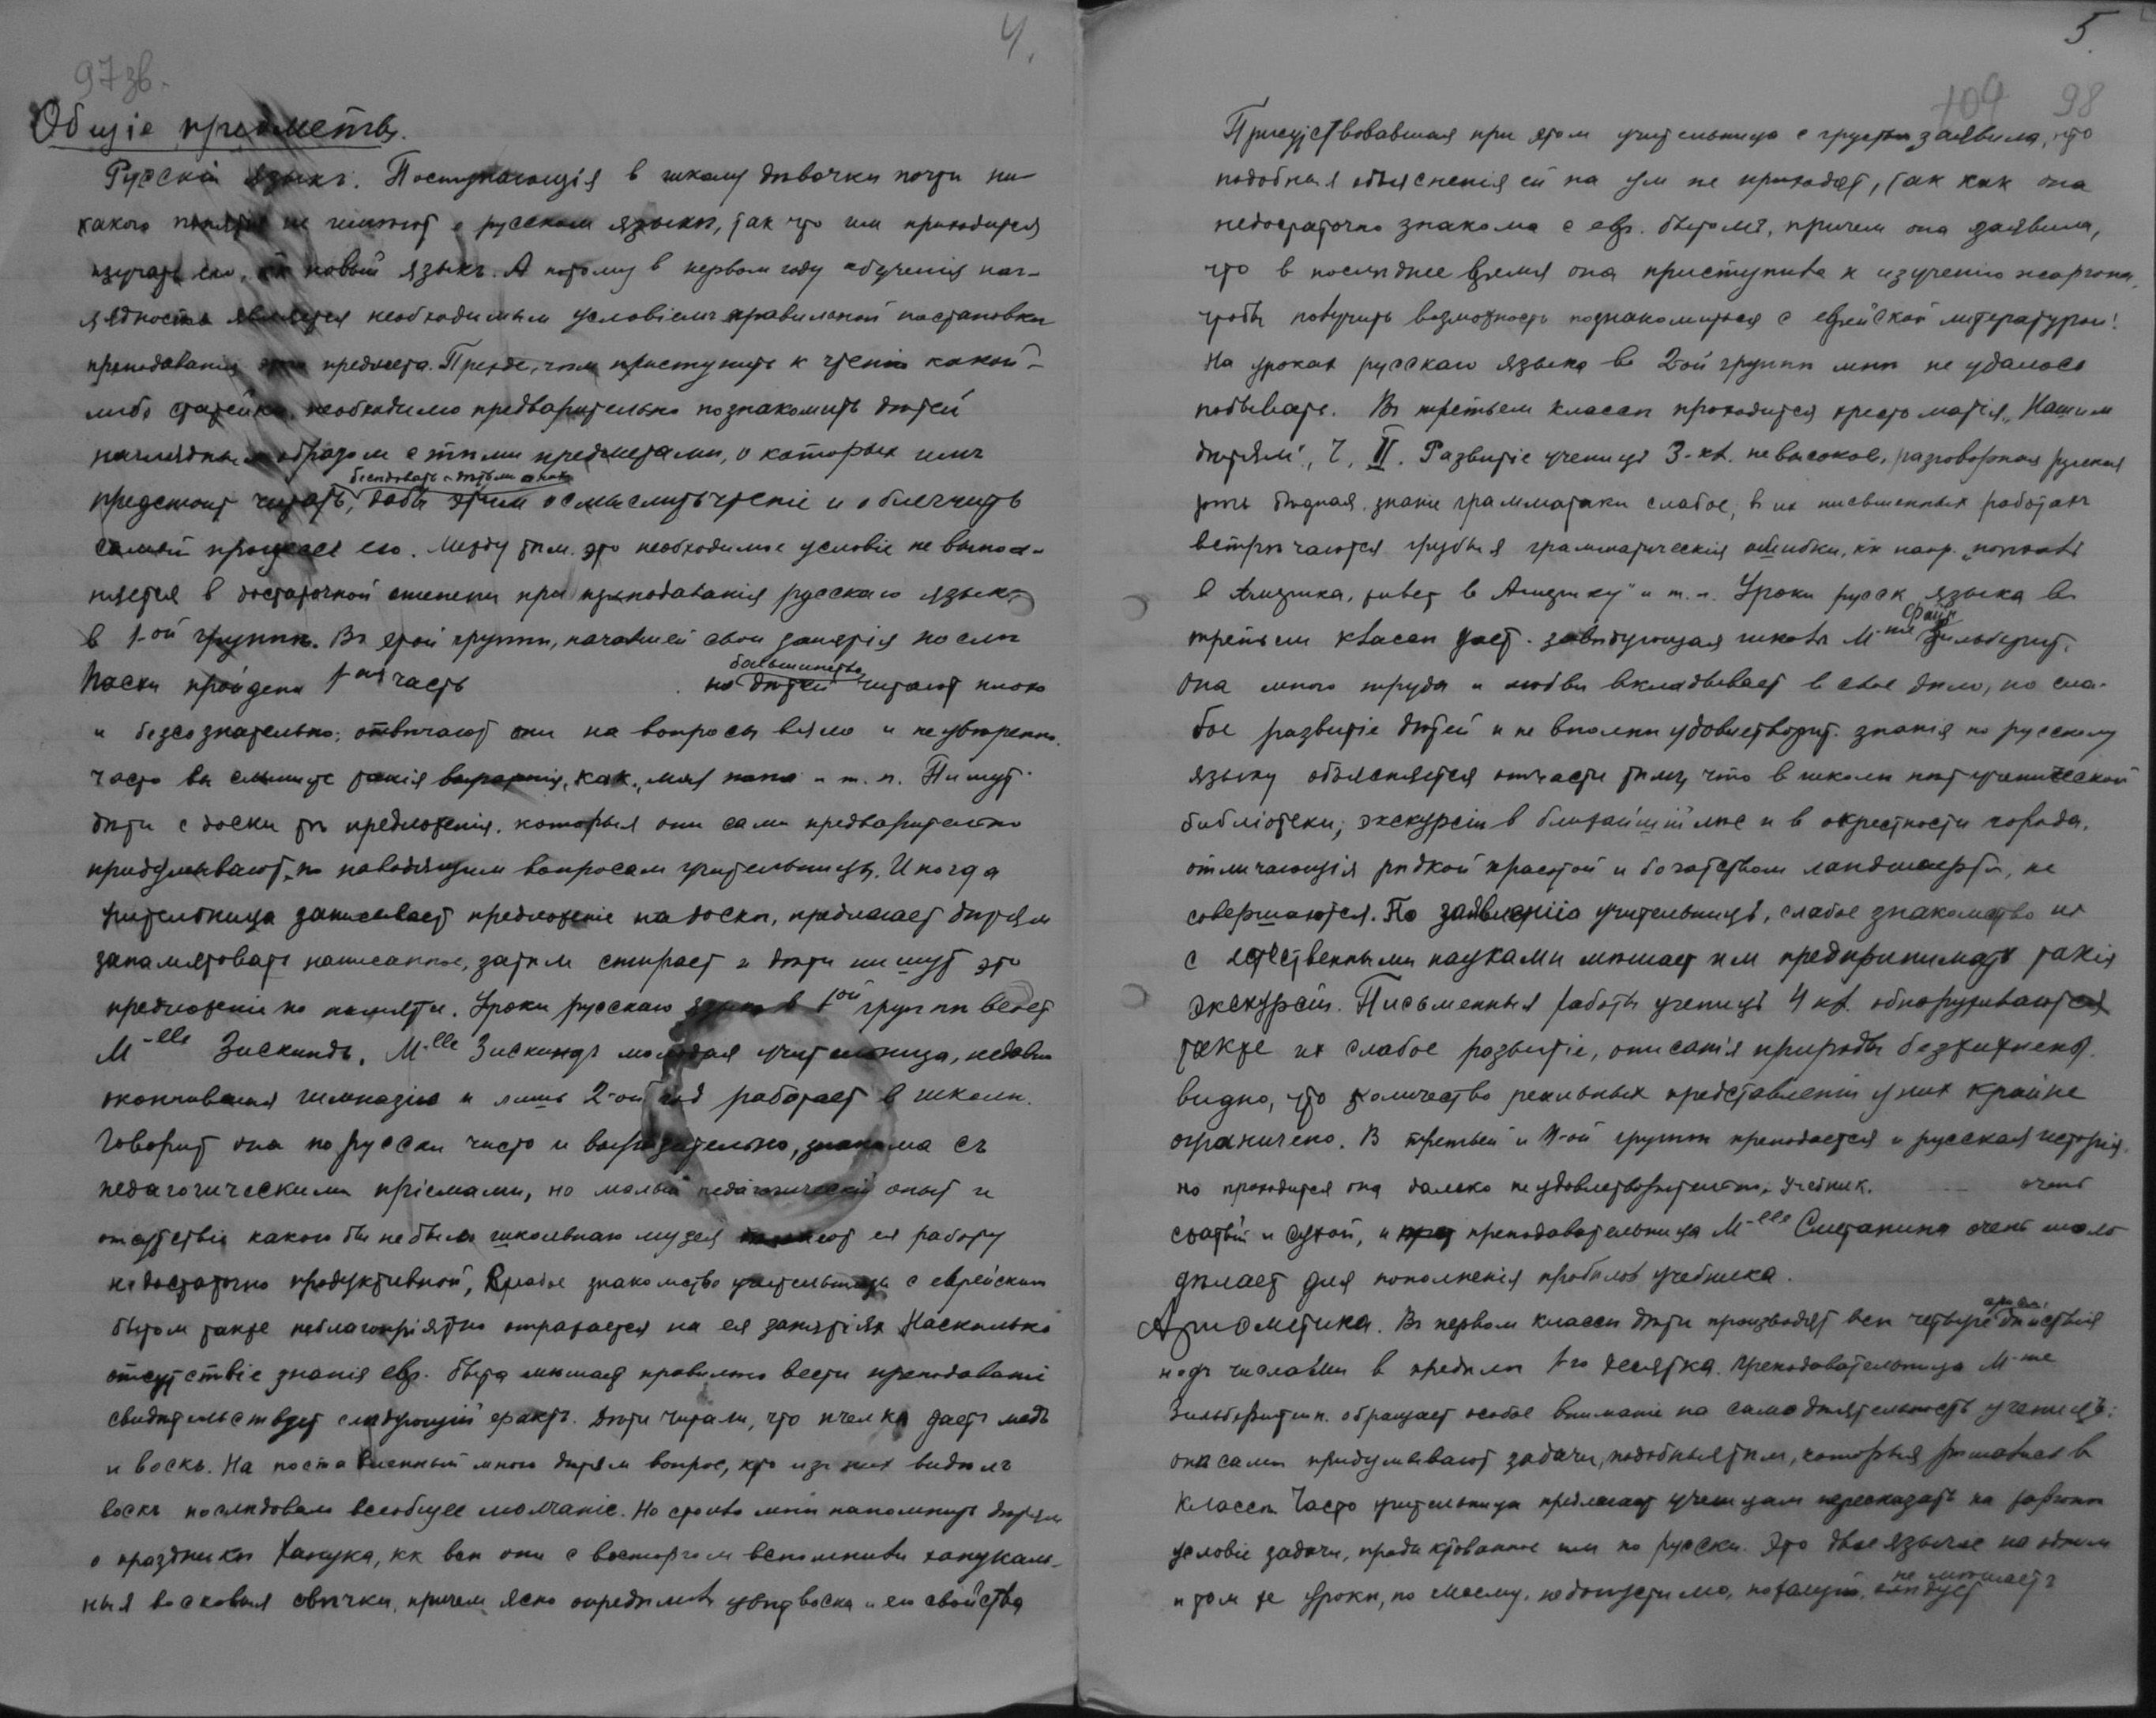 4.
97 зв.
Общіе предметы.
Русскій языкъ. Поступающія в школу дѣвочки почти ни-
какого понятія не имѣют о русском языкѣ, так что им приходится
изучать его, кк новый языкъ. А потому в первом году обученія наг-
лядность является необходимым условіемъ правильной постановки
преподаванія этого предмета. Прежде, чѣм приступить к чтенію какой-
либо статейки, необходимо предварительно познакомить дѣтей
наглядным образом с тѣми предметами, о которых имъ
бесѣдовать с дѣтьми о них
предстоит читать, дабы этим осмыслить чтеніе и облегчить
самый процесс его. Между тѣм это необходимое условіе не выпол-
няется в достаточной степени при преподаваніи русскаго языка
в 1-ой группѣ. Въ этой группѣ, начавшей свои занятія послѣ
большинство
Пасхи пройдена 1-ая часть но дѣтей читают плохо
и безсознательно; отвѣчают они на вопросы вяло и неувѣренно.
часто вы слышите такія выраженія, как „мая папа" и т. п. Пишут
дѣти с доски тѣ предложенія, которыя они сами предварительно
придумывают по наводящим вопросам учительницы. Иногда
учительница записывает предложеніе на доскѣ, предлагает дѣтям
запамятовать написанное, затѣм стирает и дѣти пишут это
предложеніе по памяти. Уроки русскаго языка в 1-ой группѣ ведет
M-lle Зискиндъ. M-lle Зискиндъ молодая учительница, недавно
окончившая гимназію и лишь 2-ой год работает в школѣ.
Говорит она по русски чисто и выразительно, знакома съ
педагогическими пріемами, но малый педагогическій опыт и
отсутствіе какого бы не было школьнаго музея дѣлают ея работу
недостаточно продуктивной, слабое знакомство учительницы с еврейским
бытом также неблагопріятно отражается на ея занятіях. Насколько
отсутствіе знанія евр. быта мѣшает правильно вести преподаваніе
свидѣтельствует слѣдующій фактъ. Дѣти читали, что пчелка даетъ медъ
и воскъ. На поставленный мною дѣтям вопрос, кто изъ них видѣлъ
воскъ послѣдовало всеобщее молчаніе. Но стоило мнѣ напомнить дѣтям
о праздникѣ Ханука, кк всѣ они с восторгом вспомнили ханукаль-
ныя восковыя свѣчки, причем ясно опредѣлили цвѣт воска и его свойства
5.
109 98
Присутствовавшая при этом учительница с грустью заявила, что
подобныя объясненія ей на ум не приходят, так как она
недостаточно знакома с евр. бытомъ, причем она заявила,
что в послѣднее время она приступила к изученію жаргона,
чтобы получить возможность познакомиться с еврейской литературой!
На уроках русскаго языка во 2-ой группѣ мнѣ не удалось
побывать. Въ третьем классѣ проходится хрестоматія „Нашим
дѣтям", Ч. II. Развитіе ученицъ 3-кл. невысокое, разговорная русская
рѣчь бѣдная, знаніе грамматики слабое, в их письменных работах
встрѣчаются грубыя грамматическія ошибки, кк напр. „поехавъ
в Америка, живет в Америку" и т. п. Уроки русск. языка в
третьем классѣ дает завѣдующая школы M-me Зильбершт.
Она много труда и любви вкладывает в свое дѣло, но сла-
бое развитіе дѣтей и не вполнѣ удовлетворит. знанія по русскому
языку объясняется отчасти тѣм, что в школѣ нѣт ученической
библіотеки; экскурсіи в ближайшій лѣс и в окрестности города,
отличающіяся рѣдкой красотой и богатством ландшафта, не
совершаются. По заявленію учительницъ, слабое знакомство их
с естественными науками мѣшает им предпринимать такія
экскурсіи. Письменныя работы ученицъ 4 кл. обнаруживают
также их слабое развитіе, описанія природы безжизнены.
видно, что количество реальных представленій у них крайне
ограничено. В третьей и 4-ой группѣ преподается и русская исторія,
но проходится она далеко неудовлетворительно. Учебник очень
сжатый и сухой, и преподавательница M-lle Сметанина очень мало
дѣлает для пополненія пробѣлов учебника.
ариѳм.
Ариѳметика. Въ первом классѣ дѣти производят всѣ четыре дѣйствія
надъ числами в предѣлѣ 1-го десятка. Преподавательница M-me
Зильберштейн обращает особое вниманіе на самодѣятельность ученицъ:
они сами придумывают задачи, подобныя тѣм, которыя рѣшались в
классѣ. Часто учительница предлагает ученицам пересказать на жаргонѣ
условіе задачи, продиктованное им по русски. Это двоеязычіе на одном
не мѣшаетъ
и том же урокѣ, по моему, недопустимо, пожалуй, слѣдует